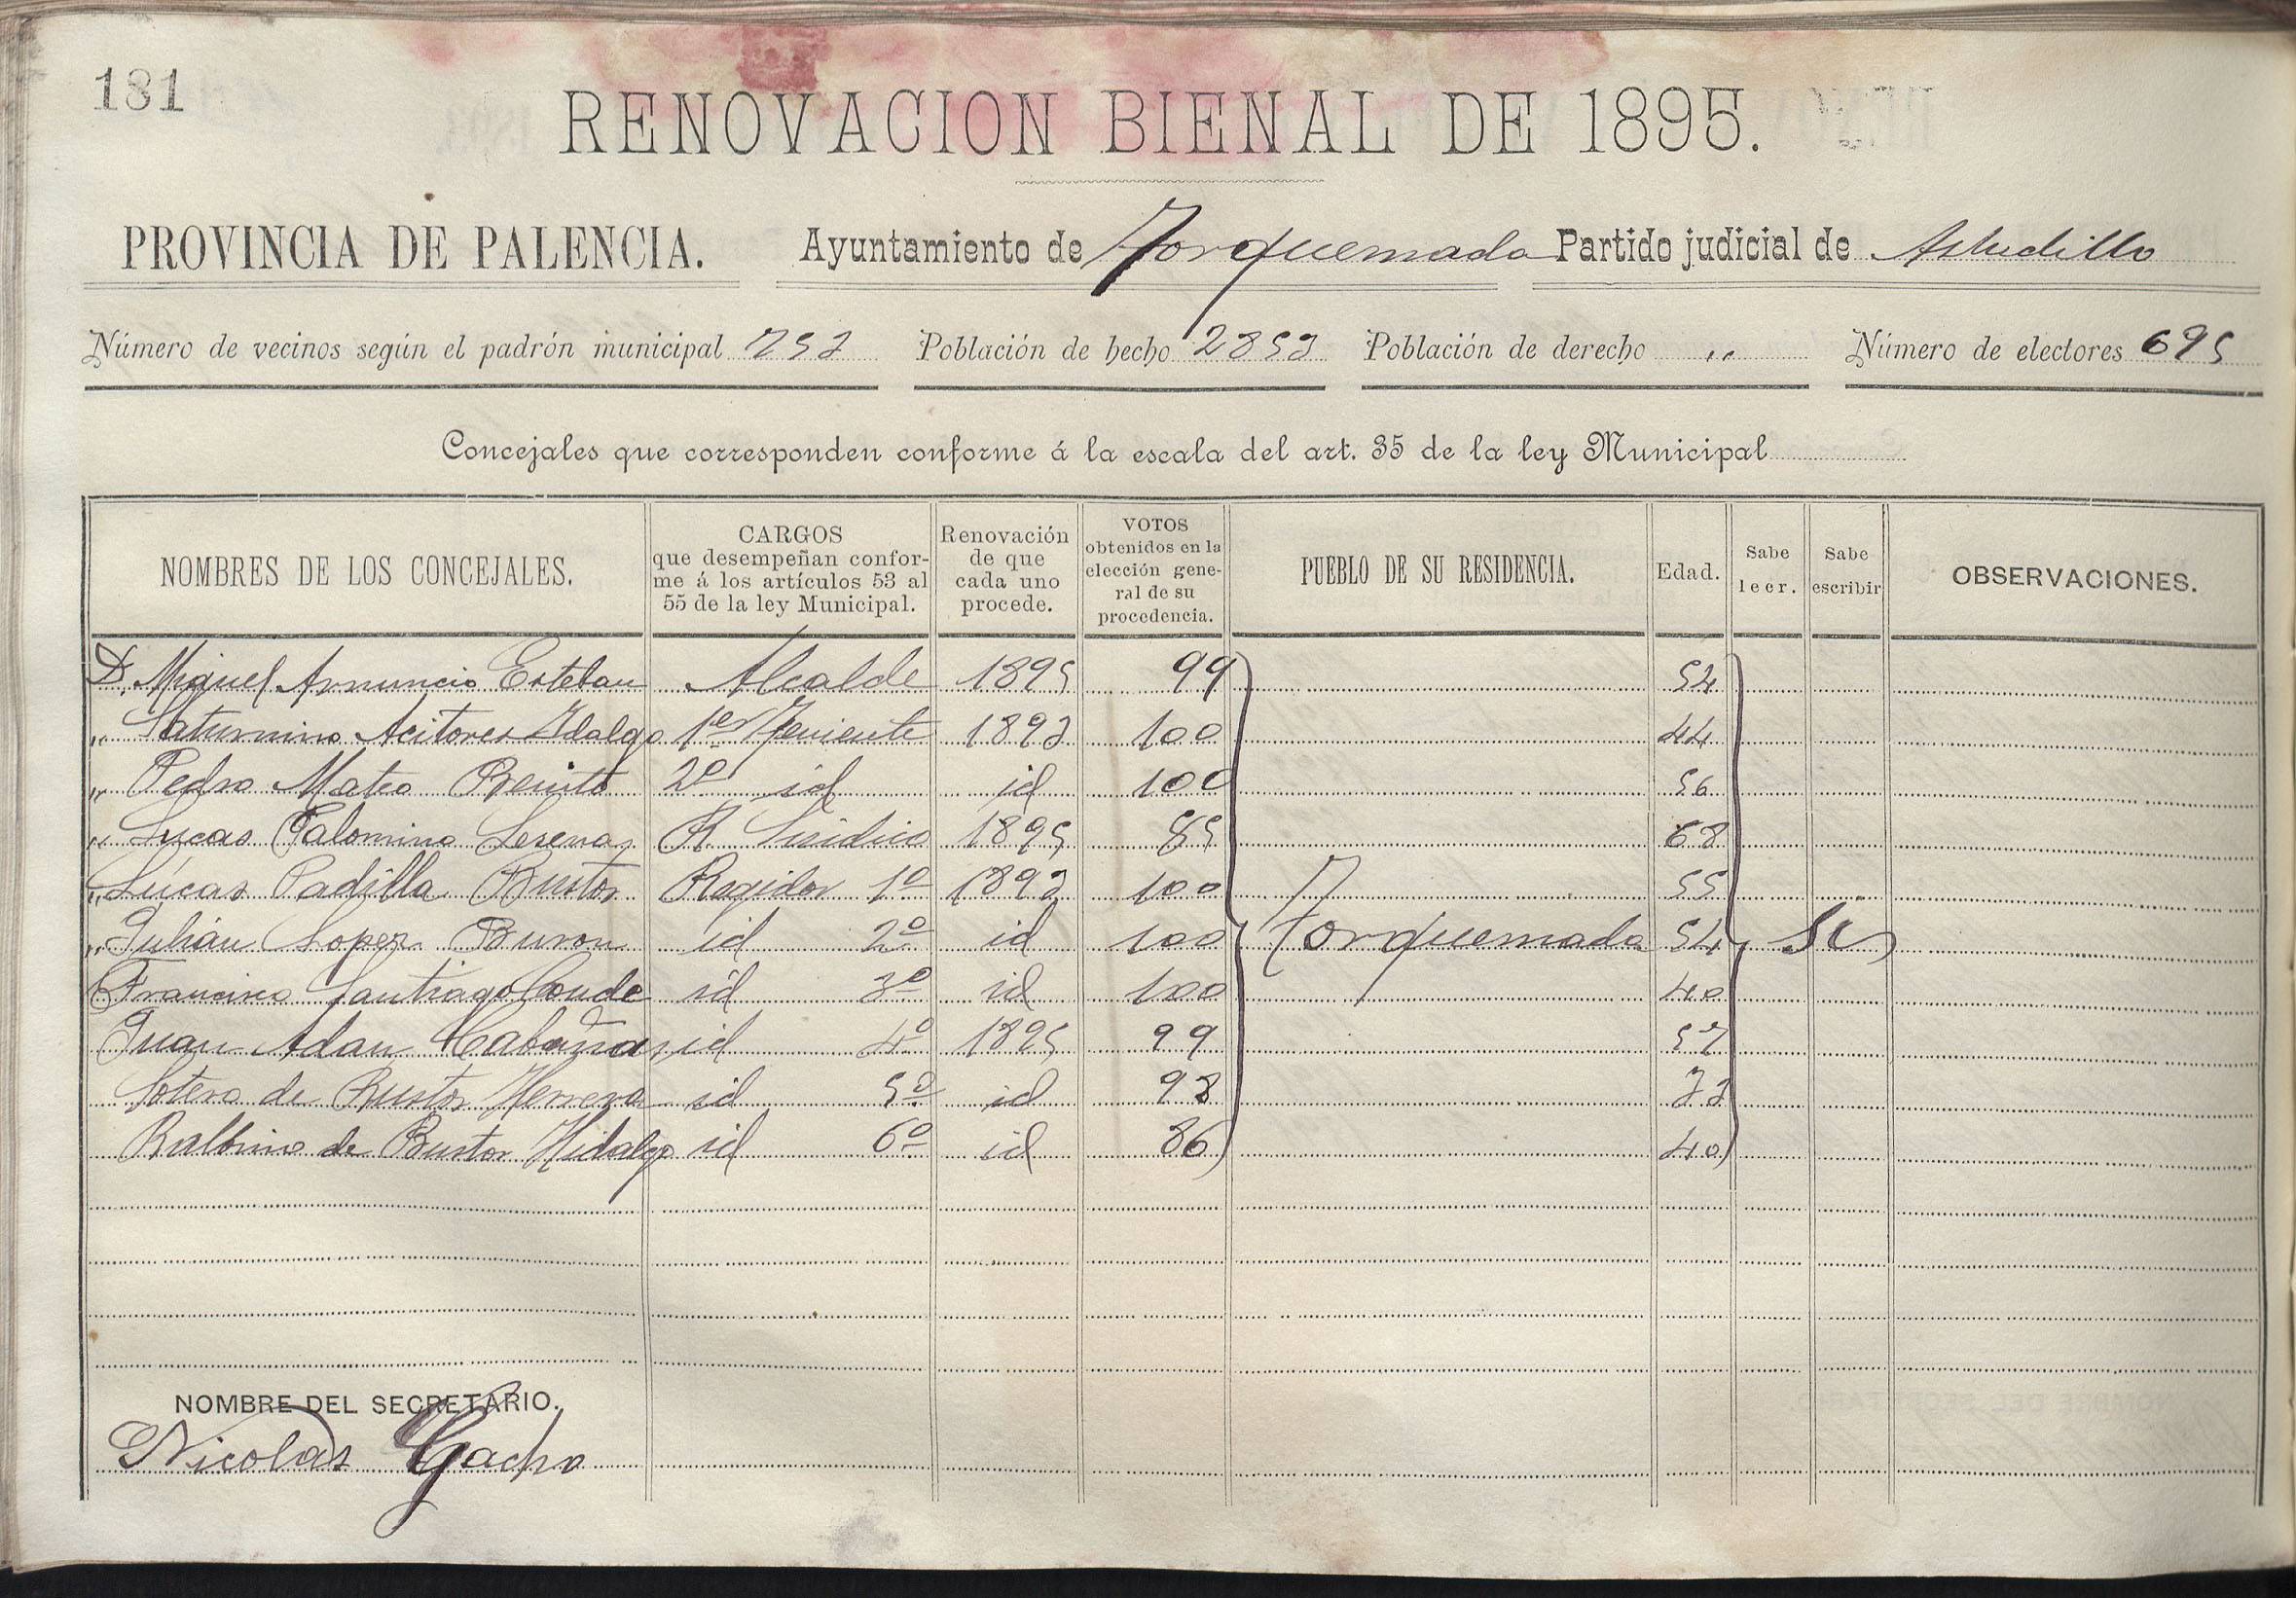 181
RENOVACION BIENAL DE 1895.
PROVINCIA DE PALENCIA. Ayuntamiento de Torquemada Partido judicial de Astudillo
Número de vecinos según el padrón municipal 753 Población de hecho 2853 Población de derecho ,, Número de electores 695
Concejales que corresponden conforme á la escala del art. 35 de la ley Municipal
NOMBRES DE LOS CONCEJALES. CARGOS que desempeñan conforme á los artículos 53 al 55 de la ley Municipal. Renovación de que cada uno procede. VOTOS obtenidos en la elección general de su procedencia. PUEBLO DE SU RESIDENCIA. Edad. Sabe leer. Sabe escribir OBSERVACIONES.
D. Miguel Arnuncio Esteban Alcalde 1895 99 54
,, Saturnino Acitores Hidalgo 1er Teniente 1893 100 44
,, Pedro Mateo Benito 2º id id 100 56
,, Lucas Palomino R. Sindico 1895 85 68
,, Lúcas Padilla Bustos Regidor 1º 1893 100 55
,, Julián Lopez Buron id 2º id 100 Torquemada 54 Si
Francisco Santiago Conde id 3º id 100 40
Juan Adan Cabañas id 4º 1895 99 57
Sotero de Bustos Herrera id 5º id 98 33
Balbino de Bustos Hidalgo id 6º id 86 40
NOMBRE DEL SECRETARIO.
Nicolás Gacho